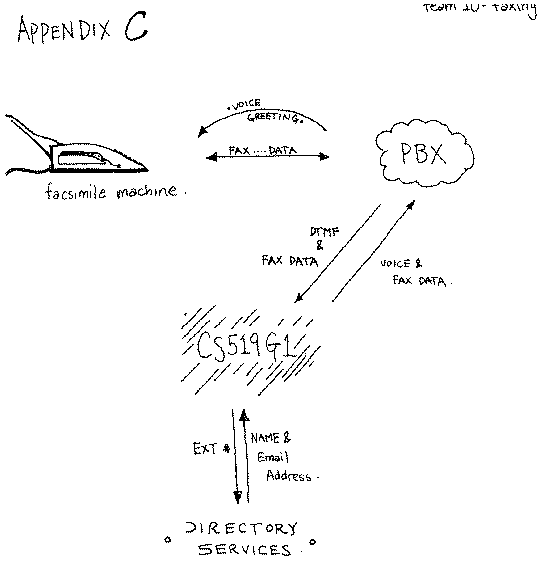 Team 10 - Faxing
APPENDIX C
. VOICE
GREETING .
FAX .... DATA
PBX
facsimile machine .
DTMF
&
FAX DATA
VOICE &
FAX DATA .
CS519G1
EXT #
NAME &
Email
Address .
DIRECTORY
SERVICES